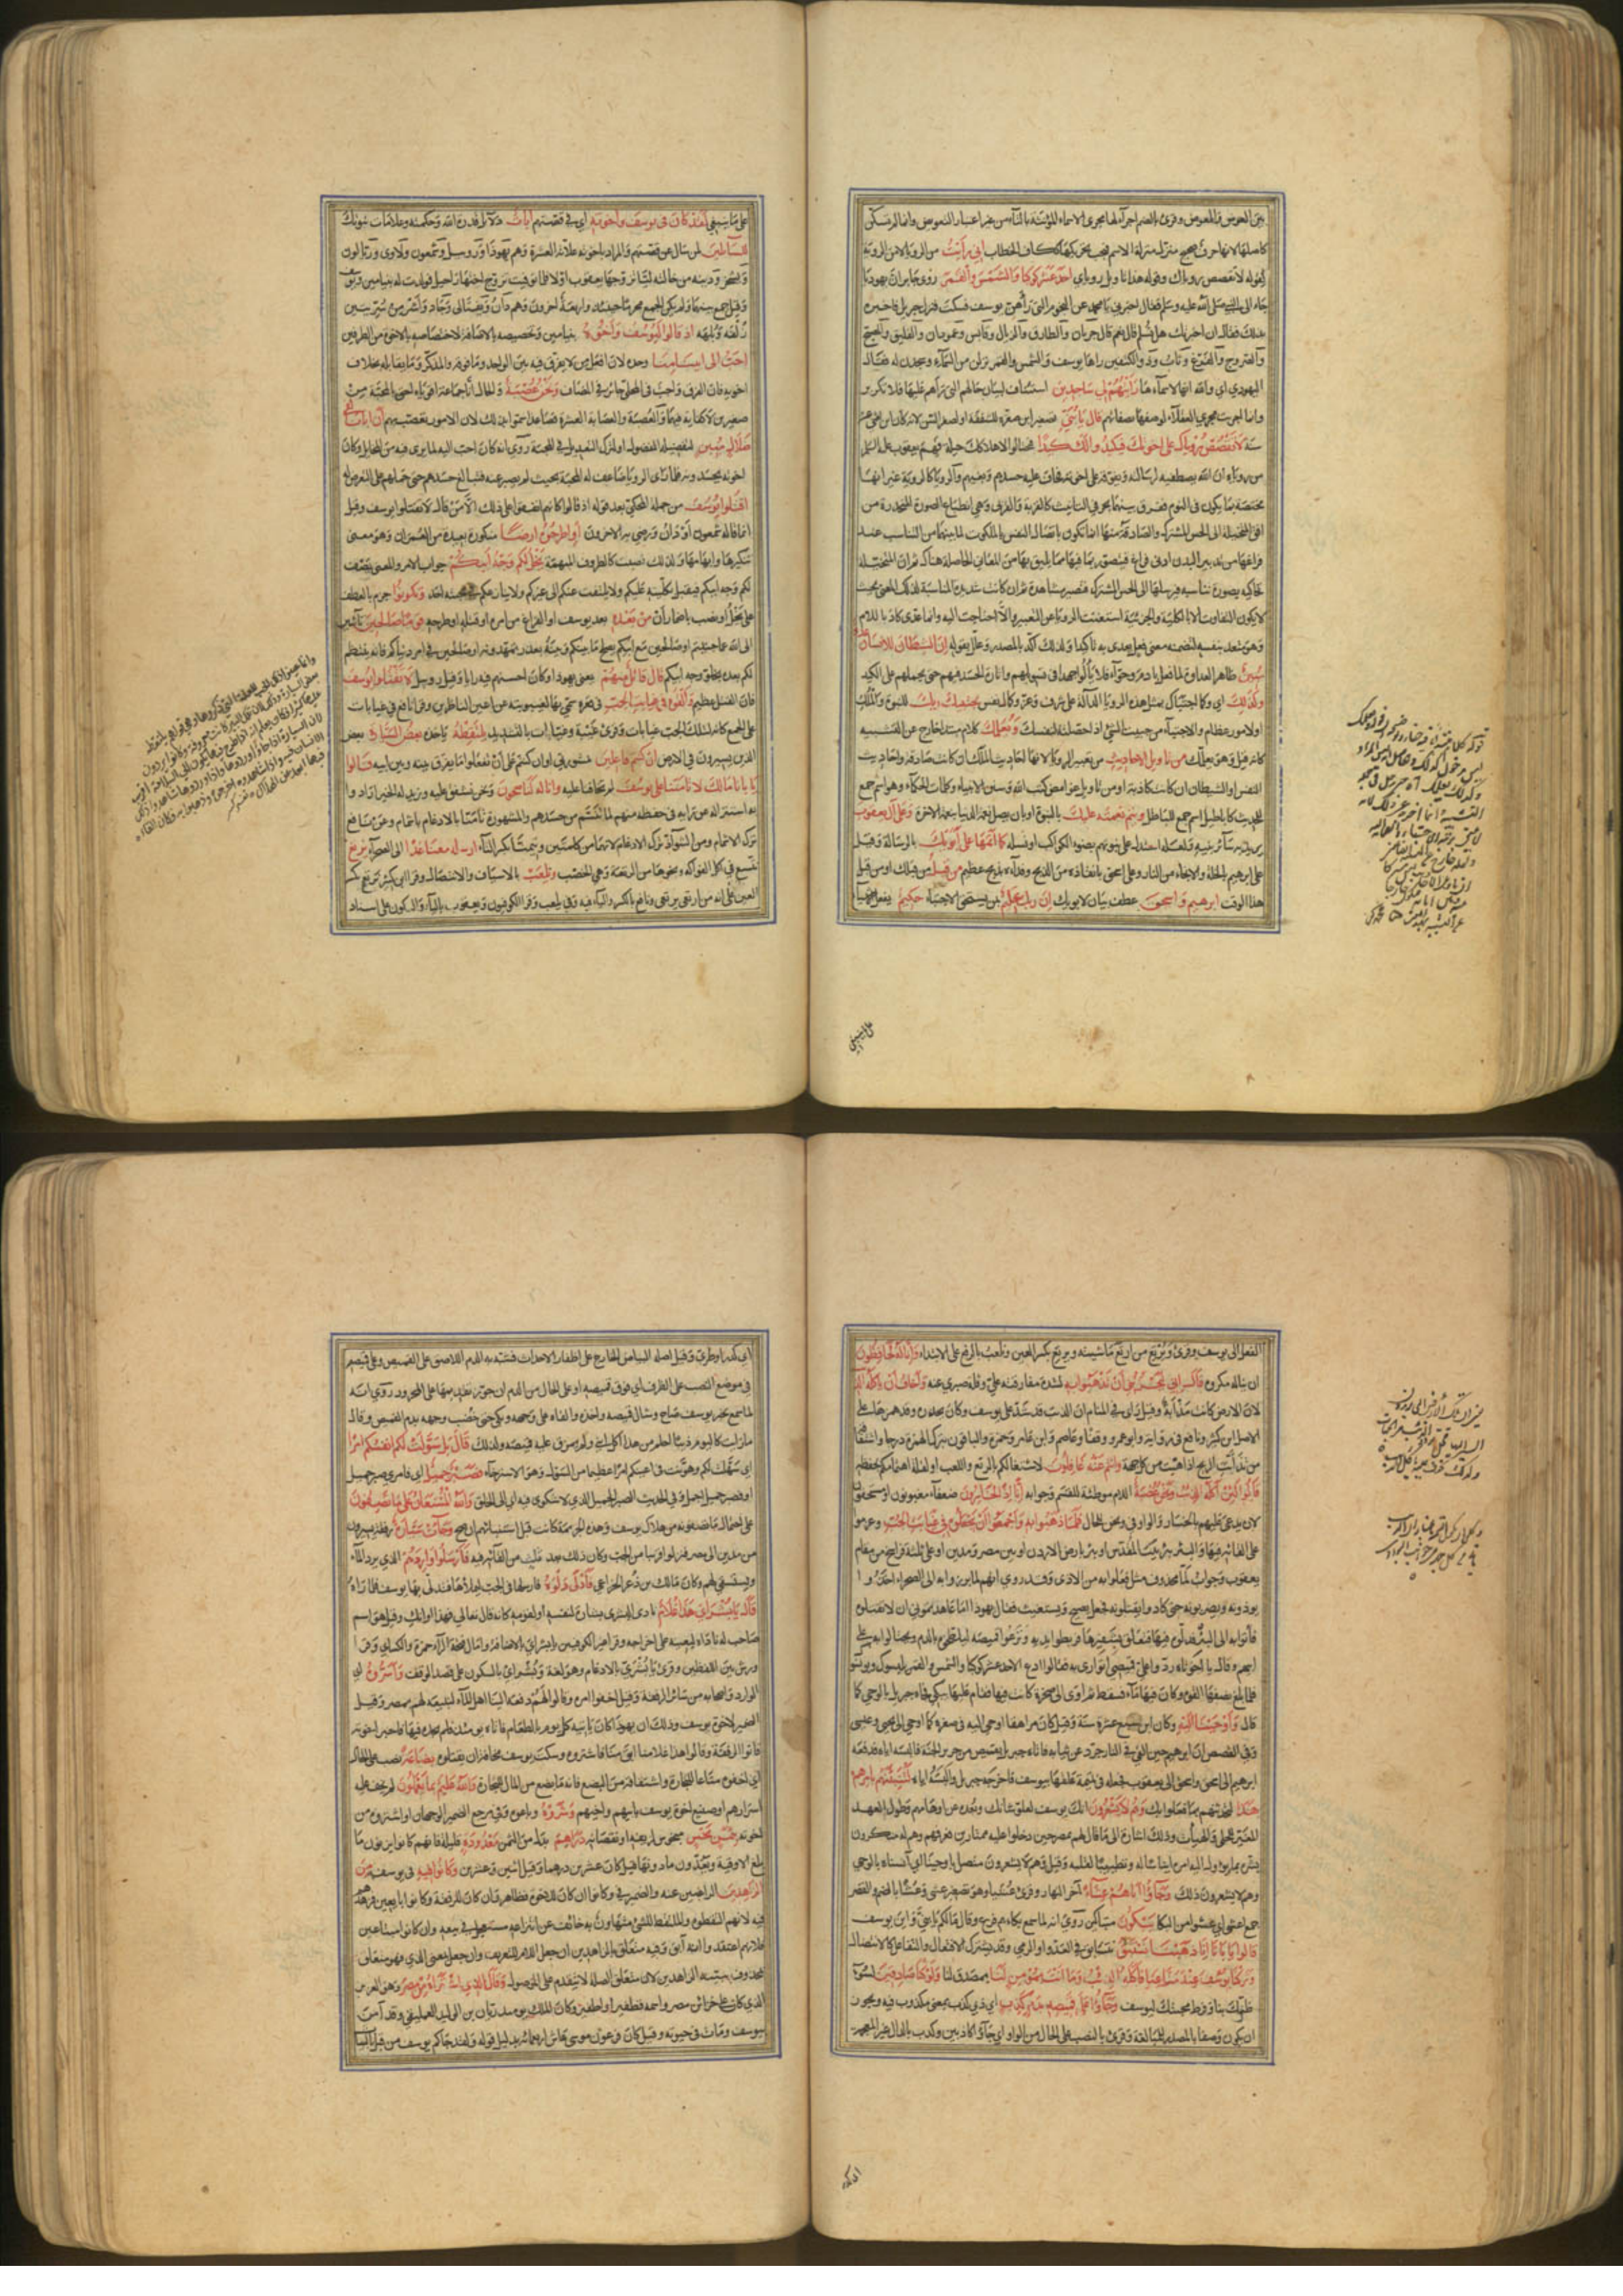 بين العوض والمعوض وقرئ بالضم اجراء لها مجرى الاسماء المؤنثة بالتاء من غير اعتبار التعويض وانما لم تسكن
كاصلها لانها حرف صحيح منزل منزلة الاسم فيجب تحريكها ككاف الخطاب اني رأيت من الرويا لا من الروية
لقوله لا تقصص روياك وقوله هذا تاويل روياي احد عشر كوكبا والشمس والقمر روى جابر ان يهوديا
جاء الى النبي صلى الله عليه وسلم فقال اخبرني يا محمد عن النجوم التي رآهن يوسف فسكت فنزل جبريل فاخبره
بذلك فقال ان اخبرتك هل تسلم قال نعم قال جربان والطارق والذيال وقابس وعمودان والفليق والمصبح
والضروح والفرغ ووثاب وذو الكتفين رآها يوسف والشمس والقمر نزلن من السماء وسجدن له فقال
اليهودي اي والله انها لاسماءها رأيتهم لي ساجدين استئناف لبيان حالهم التي رآهم عليها فلا تكرير
وانما اجريت مجرى العقلاء لوصفها بصفاتهم قال يا بني تصغير ابن صغره للشفقة او لصغر السن لانه كان ابن اثنتي عشر
سنة لا تقصص روياك على اخوتك فيكيدوا لك كيدا فيحتالوا لاهلاكك حيلة فهم يعقوب عليه السلام
من روياه ان الله يصطفيه لرسالته ويفوقه على اخوته فخاف عليه حسدهم وبغيهم والرويا كالروية غير انها
مختصة بما يكون في النوم ففرق بينهما بحرفي التانيث كالقربة والقربى وهي انطباع الصورة المنحدرة من
افق المتخيلة الى الحس المشترك والصادقة منها انما تكون باتصال النفس بالملكوت لما بينهما من التناسب عند
فراغها من تدبير البدن ادنى فراغ فتتصور بما فيها مما يليق بها من المعاني الحاصلة هناك ثم ان المتخيلة
تحاكيه بصورة تناسبه فترسلها الى الحس المشترك فتصير مشاهدة ثم ان كانت شديدة المناسبة لذلك المعنى بحيث
لا يكون التفاوت الا بالكلية والجزئية استغنت الرويا عن التعبير والا احتاجت اليه وانما عدى كاد باللام
وهو متعد بنفسه لتضمنه معنى فعل يعدى به تاكيدا ولذلك اكد بالمصدر وعلله بقوله ان الشيطان للانسان عدو
مبين ظاهر العداوة لما فعل بادم وحواء فلا يألو جهدا في تسويلهم واثارة الحسد فيهم حتى يحملهم على الكيد
وكذلك اي وكما اجتباك بمثل هذه الرويا الدالة على شرف وعز وكمال نفس يجتبيك ربك للنبوة والملك
او لامور عظام والاجتباء من جبيت الشئ اذا حصلته لنفسك ويعلمك كلام مبتدا خارج عن التشبيه
كانه قيل وهو يعلمك من تاويل الاحاديث من تعبير الرويا لانها احاديث الملك ان كانت صادقة واحاديث
النفس والشيطان ان كانت كاذبة او من تاويل غوامض كتب الله وسنن الانبياء وكلمات الحكماء وهو اسم جمع
للحديث كاباطيل اسم جمع للباطل ويتم نعمته عليك بالنبوة او بان يصل نعمة الدنيا بنعمة الاخرة وعلى آل يعقوب
يريد به سائر بنيه ولعله استدل على نبوتهم بضوء الكواكب او نسله كما اتمها على ابويك بالرسالة وقيل
على ابرهيم بالخلة والانجاء من النار وعلى اسحق بانقاذه من الذبح وفدائه بذبح عظيم من قبل من قبلك او من قبل
هذا الوقت ابرهيم واسحق عطف بيان لابويك ان ربك عليم بمن يستحق الاجتباء حكيم يفعل الاشياء
على ما ينبغي
على ما ينبغي لقد كان في يوسف واخوته اي في قصتهم ايات دلائل قدرة الله وحكمته وعلامات نبوتك
للسائلين لمن سال عن قصتهم والمراد باخوته علاته العشرة وهم يهوذا وروبيل وشمعون ولاوى وربالون
ويشجر ودينه من خالته ليا تزوجها يعقوب اولا فلما توفيت تزوج اختها راحيل فولدت له بنيامين ويوسف
وقيل جمع بينهما ولم يكن الجمع محرما حينئذ واربعة اخرون وهم دان ونفتالى وجاد وآشر من سريتين
زلفة وبلهة اذ قالوا ليوسف واخوه بنيامين وتخصيصه بالاضافة لاختصاصه بالاخوة من الطرفين
احب الى ابينا منا وحده لان افعل من لا يفرق فيه بين الواحد وما فوقه والمذكر وما يقابله بخلاف
اخويه فان الفرق واجب في المحلى جائز في المضاف ونحن عصبة والحال انا جماعة اقوياء احق بالمحبة من
صغيرين لا كفاية فيهما والعصبة والعصابة العشرة فصاعدا سموا بذلك لان الامور تعصب بهم ان ابانا لفي
ضلال مبين لتفضيله المفضول او لترك التعديل في المحبة روي انه كان احب اليه لما يرى فيه من المخايل وكان
اخوته يحسدونه فلما راى الرويا ضاعف له المحبة بحيث لم يصبر عنه فتبالغ حسدهم حتى حملهم على التعرض له
اقتلوا يوسف من جملة المحكي بعد قوله اذ قالوا كانهم اتفقوا على ذلك الا من قال لا تقتلوا يوسف وقيل
انما قاله شمعون او دان ورضي به الاخرون او اطرحوه ارضا منكورة بعيدة من العمران وهو معنى
تنكيرها وابهامها ولذلك نصبت كالظروف المبهمة يخل لكم وجه ابيكم جواب الامر والمعنى يصف
لكم وجه ابيكم فيقبل بكليته عليكم ولا يلتفت عنكم الى غيركم ولا ينازعكم في محبته احد وتكونوا جزم بالعطف
على يخل او نصب باضمار ان من بعده بعد يوسف او الفراغ من امره او قتله او طرحه قوما صالحين تائبين
الى الله عما جنيتم او صالحين مع ابيكم يصلح ما بينكم وبينه بعذر تمهدونه او صالحين في امر دنياكم فانه ينتظم
لكم بعده بخلو وجه ابيكم قال قائل منهم يعنى يهوذا وكان احسنهم فيه رايا وقيل روبيل لا تقتلوا يوسف
فان القتل عظيم والقوه في غيابت الجب في قعره سمي بها لغيبوبته عن اعين الناظرين وقرا نافع في غيابات
على الجمع كانه لتلك الجب غيابات وقرئ غيبة وغيابات بالتشديد يلتقطه ياخذه بعض السيارة بعض
الذين يسيرون في الارض ان كنتم فاعلين بمشورتي او ان كنتم على ان تفعلوا ما يفرق بينه وبين ابيه قالوا
يا ابانا مالك لا تأمنا على يوسف لم تخافنا عليه وانا له لناصحون ونحن نشفق عليه ونريد له الخير ارادوا
به استنزاله عن رايه في حفظه منهم لما تنسم من حسدهم والمشهورة تأمنا بالادغام باشمام وعن نافع
ترك الاشمام ومن الشواذ ترك الادغام لانهما من كلمتين وتيمنا بكسر التاء ارسله معنا غدا الى الصحراء نرتع
نتسع في اكل الفواكه ونحوها من الرتعة وهي الخصب ونلعب بالاستباق والانتضال وقرا ابن كثير نرتع بكسر
العين على انه من ارتعى يرتعي ونافع بالكسر والياء فيه وفي يلعب وقرا الكوفيون ويعقوب بالياء والسكون على اسناد
الفعل الى يوسف وقرئ ويرتع من ارتع ماشيته ويرتع بكسر العين ويلعب بالرفع على الابتداء وانا له لحافظون
ان يناله مكروه قال اني ليحزنني ان تذهبوا به لشدة مفارقته علي وقلة صبري عنه واخاف ان ياكله الذئب
لان الارض كانت مذأبة وقيل راى في المنام ان الذئب قد شد على يوسف وكان يحذره وقد همزها على
الاصل ابن كثير ونافع في رواية وابو عمرو وقفا وعاصم وابن عامر وحمزة والباقون بترك الهمزة درجا واشتقاقه
من تذأبت الريح اذا هبت من كل جهة وانتم عنه غافلون لاشتغالكم بالرتع واللعب او لقلة اهتمامكم بحفظه
قالوا لئن اكله الذئب ونحن عصبة اللام موطئة للقسم وجوابه انا اذا لخاسرون ضعفاء مغبونون او مستحقون
لان يدعى عليهم بالخسار والواو في ونحن للحال فلما ذهبوا به واجمعوا ان يجعلوه في غيابت الجب وعزموا
على القائه فيها والبئر بئر بيت المقدس او بئر بارض الاردن او بين مصر ومدين او على ثلاثة فراسخ من مقام
يعقوب وجواب لما محذوف مثل فعلوا به من الاذى وقد روي انهم لما برزوا به الى الصحراء اخذوا
يوذونه ويضربونه حتى كادوا يقتلونه فجعل يصيح ويستغيث فقال يهوذا اما عاهدتموني ان لا تقتلوه
فأتوا به الى البئر فدلوه فيها فتعلق بشفيرها فربطوا يديه ونزعوا قميصه ليلطخوه بالدم ويحتالوا به على
ابيهم وقال يا اخوتاه ردوا علي قميصي اتوارى به فقالوا ادع الاحد عشر كوكبا والشمس والقمر يلبسوك ويونسو
فلما بلغ نصفها القوه وكان فيها ماء فسقط ثم اوى الى صخرة كانت فيها فقام عليها يبكي فجاءه جبريل بالوحي كما
قال واوحينا اليه وكان ابن سبع عشرة سنة وقيل كان مراهقا اوحي اليه في صغره كما اوحي الى يحيى وعيسى
وفي القصص ان ابرهيم حين القي في النار جرد عن ثيابه فاتاه جبريل بقميص من حرير الجنة فالبسه اياه فدفعه
ابرهيم الى اسحق واسحق الى يعقوب فجعله في تميمة علقها بيوسف فاخرجه جبريل والبسه اياه لتنبئنهم بامرهم
هذا لتحدثنهم بما فعلوا بك وهم لا يشعرون انك يوسف لعلو شانك وبعده عن اوهامهم وطول العهد
المغير للحلي والهيآت وذلك اشارة الى ما قال لهم بمصر حين دخلوا عليه ممتارين فعرفهم وهم له منكرون
بشره بما يؤل اليه امره ايناسا له وتطييبا لقلبه وقيل وهم لا يشعرون متصل باوحينا اي آنسناه بالوحي
وهم لا يشعرون ذلك وجاؤا اباهم عشاء آخر النهار وقرئ عشيا وهو تصغير عشي وعشا بالضم والقصر
جمع اعشى اي عشوا من البكاء يبكون متباكين روي انه لما سمع بكاءهم فزع وقال مالكم يا بني واين يوسف
قالوا يا ابانا انا ذهبنا نستبق نتسابق في العدو او الرمي وقد يشترك الافتعال والتفاعل كالانتضال
وتركنا يوسف عند متاعنا فاكله الذئب وما انت بمؤمن لنا بمصدق لنا ولو كنا صادقين لسوء
ظنك بنا وفرط محبتك ليوسف وجاؤا على قميصه بدم كذب اي ذي كذب بمعنى مكذوب فيه ويجوز
ان يكون وصفا بالمصدر للمبالغة وقرئ بالنصب على الحال من الواو اي جاؤا كاذبين وكدب بالدال غير المعجمة
اي كدر
اي كدر او طري وقيل اصله البياض الخارج على اظفار الاحداث فشبه به الدم اللاصق على القميص وعلى قميصه
في موضع النصب على الظرف اي فوق قميصه او على الحال من الدم ان جوز تقديمها على المجرور روي انه
لما سمع بخبر يوسف صاح وسال قميصه واخذه والقاه على وجهه وبكى حتى خضب وجهه بدم القميص وقال
ما رايت كاليوم ذئبا احلم من هذا اكل ابني ولم يمزق عليه قميصه ولذلك قال بل سولت لكم انفسكم امرا
اي سهلت لكم وهونت في اعينكم امرا عظيما من السول وهو الاسترخاء فصبر جميل اي فامري صبر جميل
او فصبر جميل اجمل وفي الحديث الصبر الجميل الذي لا شكوى فيه اي الى الخلق والله المستعان على ما تصفون
على احتمال ما تصفونه من هلاك يوسف وهذه الجريمة كانت قبل استنبائهم ان صح وجاءت سيارة رفقة يسيرون
من مدين الى مصر فنزلوا قريبا من الجب وكان ذلك بعد ثلث من القائه فيه فارسلوا واردهم الذي يرد الماء
ويستسقي لهم وكان مالك بن ذعر الخزاعي فادلى دلوه فارسلها في الجب ليملأها فتدلى بها يوسف فلما راه
قال يا بشراي هذا غلام نادى البشرى بشارة لنفسه او لقومه كانه قال تعالي فهذا اوانك وقيل هو اسم
صاحب له ناداه ليعينه على اخراجه وقرا غير الكوفيين يا بشراي بالاضافة وامال فتحة الراء حمزة والكسائي وقرا
ورش بين اللفظين وقرئ يا بشري بالادغام وهو لغة وبشراي بالسكون على قصد الوقف واسروه اي
الوارد واصحابه من سائر الرفقة وقيل اخفوا امره وقالوا لهم دفعه الينا اهل الماء لنبيعه لهم بمصر وقيل
الضمير لاخوة يوسف وذلك ان يهوذا كان يأتيه كل يوم بالطعام فاتاه يومئذ فلم يجده فيها فاخبر اخوته
فاتوا الرفقة وقالوا هذا غلامنا ابق منا فاشتروه وسكت يوسف مخافة ان يقتلوه بضاعة نصب على الحال
اي اخفوه متاعا للتجارة واشتقاقه من البضع فانه ما بضع من المال للتجارة والله عليم بما يعملون لم يخف عليه
اسرارهم او صنيع اخوة يوسف بابيهم واخيهم وشروه وباعوه وفي مرجع الضمير الوجهان او اشتروه من
اخوته بثمن بخس مبخوس لزيفه او نقصانه دراهم بدل من الثمن معدودة قليلة فانهم كانوا يزنون ما
بلغ الاوقية ويعدون ما دونها قيل كان عشرين درهما وقيل اثنين وعشرين وكانوا فيه في يوسف من
الزاهدين الراغبين عنه والضمير في وكانوا ان كان للاخوة فظاهر وان كان للرفقة وكانوا بايعين فزهدهم
فيه لانهم التقطوه والملتقط للشئ متهاون به خائف عن انتزاعه مستعجل في بيعه وان كانوا مبتاعين
فلانهم اعتقدوا انه آبق وفيه متعلق بالزاهدين ان جعل اللام للتعريف وان جعل بمعنى الذي فهو متعلق
بمحذوف يبينه الزاهدين لان متعلق الصلة لا يتقدم على الموصول وقال الذي اشتراه من مصر وهو العزيز
الذي كان على خزائن مصر واسمه قطفير او اطفير وكان الملك يومئذ ريان بن الوليد العمليقي وقد آمن
بيوسف ومات في حيوته وقيل كان فرعون موسى عاش اربعمائة بدليل قوله ولقد جاءكم يوسف من قبل بالبينات